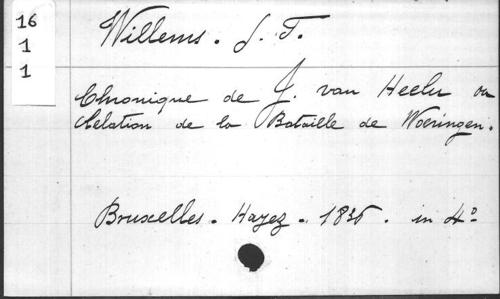 16
1
1
Willems. J. F.
Chronique de J. van Heelu ou
Relation de la Bataille de Woeringen.
Bruxelles. Hayez. 1836. in 4º